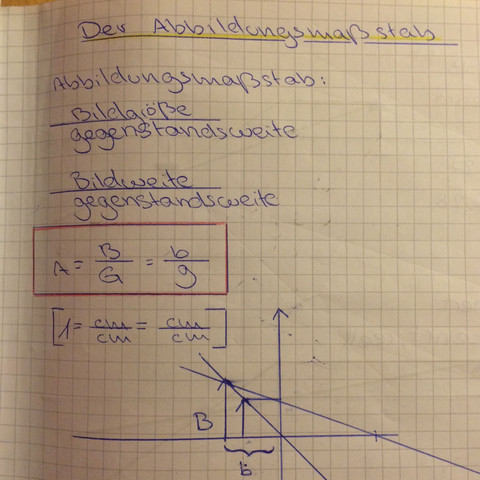 Der Abbildungsmaßstab
Abbildungsmaßstab:
Bildgröße
gegenstandsweite
Bildweite
gegenstandsweite
A = B/G = b/g
[1 = cm/cm = cm/cm]
B
b